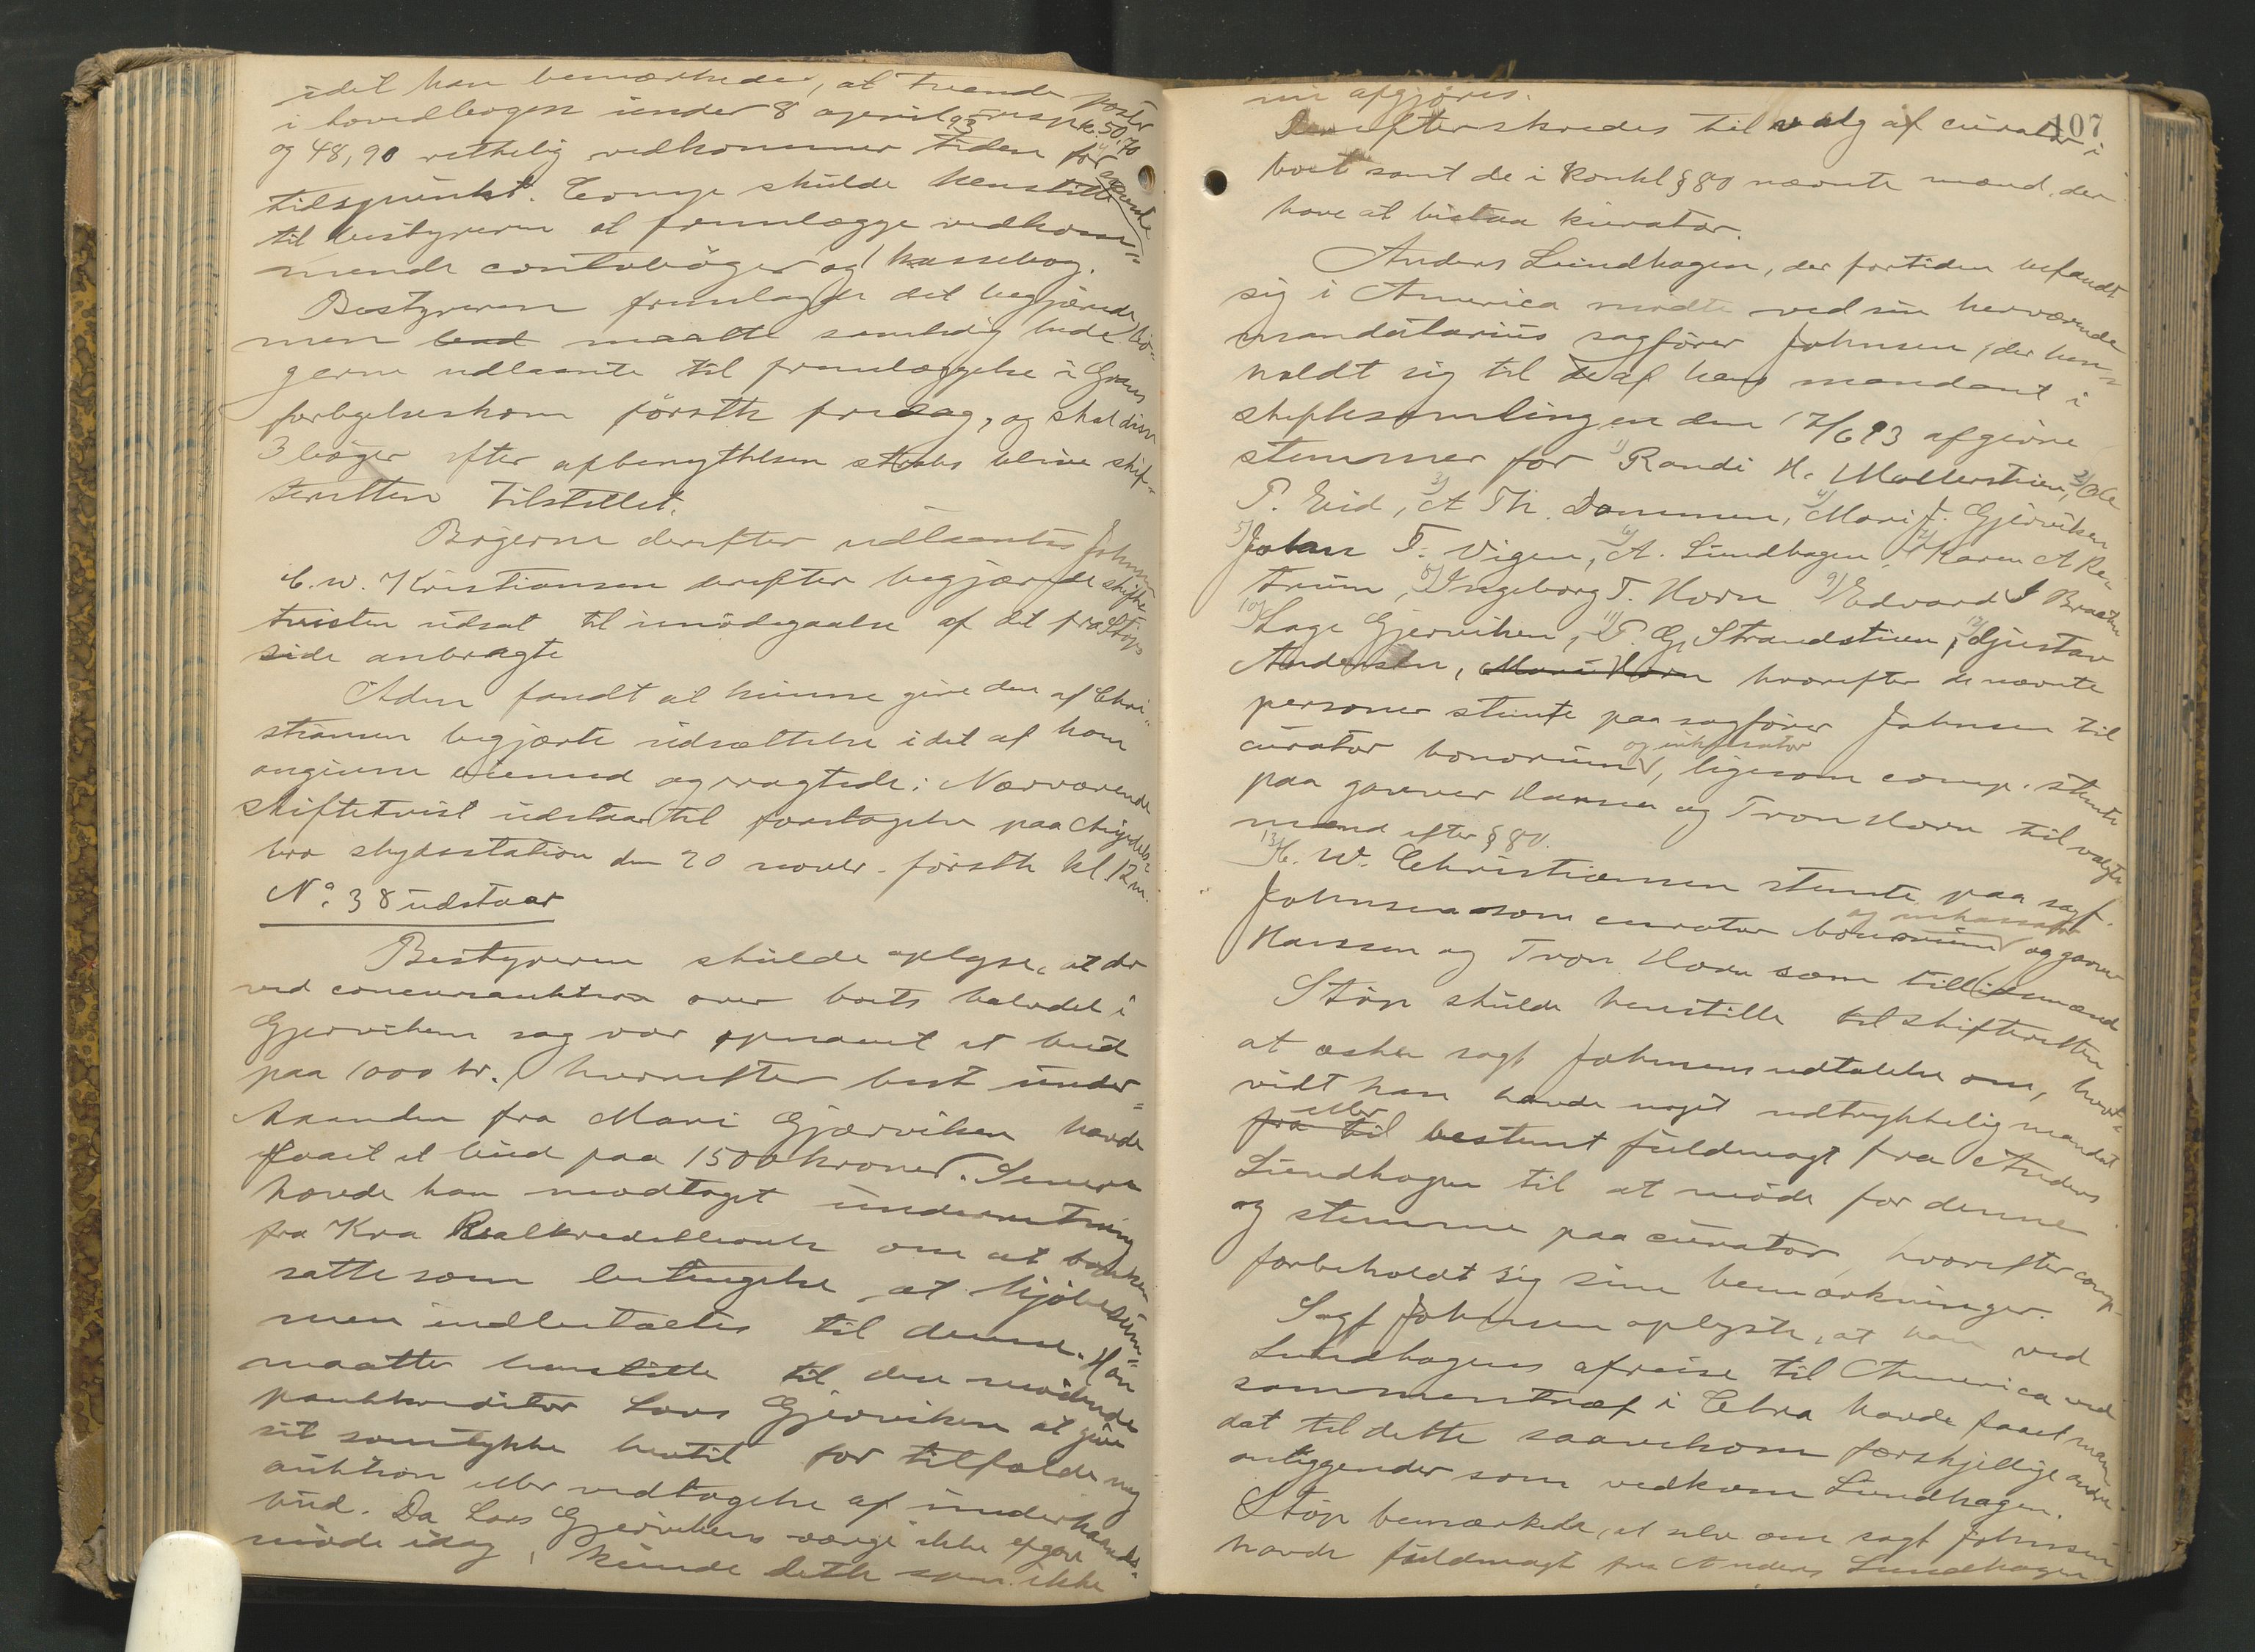 idet han bemærkede, at tvende poster
i hovedbogen under 8 april 93 resp k. 50,70
og 48,90 rettelig vedkommer tiden før
tidspunkt. Comp skulde henstille
til bestyreren at fremlægge vedkom=
mende contobøger og kassebog.
Bestyreren fremlagde det begjærede,
men maatte samtidig bede bø-
gerne udlaante til fremlæggelse i Grans
forligelseskom første fredag, og skal disse
3 bøger efter afbenyttelsen straks blive skif-
teretten tilstillet.
Bøgerne derefter udlaantes Johnsen
C. W. Kristiansen derefter begjærede skifte
tvisten udsat til imødegaaelse af det fra Støps
side anbragte
Adm fandt at kunne give den af Chri-
stiansen begjærte udsættelse i det af ham
angivne øiemed og vragtede: Nærværende
skiftetvist udstaar til foretagelse paa Augedals=
bro skydsstation den 20 novbr. første kl 12 m.
No. 38 udstaar
Bestyreren skulde oplyse, at der
ved concursauktion over boets halvdel i
Gjerviken sag var opnaaet et bud
paa 1000 kr. hvorefter bost under=
haanden fra Mari Gjærviken havde
faaet et bud paa 1500 kroner. Senere
havde han modtaget underretning
fra Kra Realkreditbank om at banken
satte som betingelse at kjøbesum=
men indbetaltes til denne. Han
maatte henstille til den mødende
pantkreditor Lars Gjerviken at give
sit samtykke hertil for tilfælde ny
auktion eller vedtagelse af underhaands=
bud. Da Lars Gjervikens værge ikke
møde idag, kunde dette spm. ikke
107
nu afgjøres.
Derefter skredes til valg af curator i
boet samt de i Konkl § 80 nævnte mænd, der
have at bistaa kurator.
Anders Lundhagen, der fortiden befandt
sig i America mødte ved sin herværende
mandatarius sagfører Johnsen, der hen=
holdt sig til de af hans mandant i
skiftesamlingen den 17/6 93 afgivne
stemmer for 1) Randi H. Møllerstuen, 2) Ole
P. Eid, 3) A Th. Dammen, 4) Mari J. Gjerviken
5) Johan T. Vigen, 6) A. Lundhagen, 7) Karen A Re-
trum, 8) Ingeborg T. Horn 9) Edvard I Braaten
10) Lage Gjerviken, 11) P. G. Strandstuen, 12) Gjustav
Andersen, Mari Horn hvorefter de nævnte
personer stemte paa sagfører Johnsen til
curator bonorum og inkassator, ligesom comp. stemte
paa garver Hansen og Tron Horn til valgte
mænd efter § 80.
13) C. W. Christiansen stemte paa sagf.
Johnsen som curator bonorum og inkassator og garver
Hanssen og Tron Horn som tillidsmænd
Støp skulde henstille til skifteretten
at æske sagf Johnsens udtalelse om, hvor=
vidt han havde noget udtrykkelig mandat
fra til eller bestemt fuldmagt fra Anders
Lundhagen til at møde for denne
og stemme paa curator, hvorefter comp-
forbeholdt sig sine bemærkninger.
Sagf Johnsen oplyste, at han ved
Lundhagens afreise til America ved
sammentræf i Chra havde faaet man
dat til dette saavelsom forskjellige andre
anliggender som vedkom Lundhagen.
Støp bemærkede, at selv om sagf Johnsen
havde fuldmagt fra Anders Lundhagen